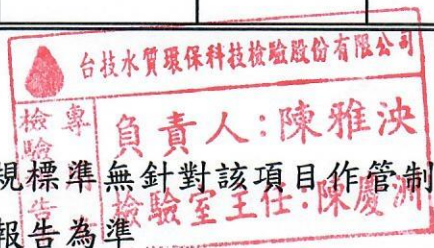 台技水質環保科技檢驗股份有限公司
檢驗報告專用
負責人:陳雅泱
檢驗室主任:陳慶淵
規標準無針對該項目作管制
報告為準